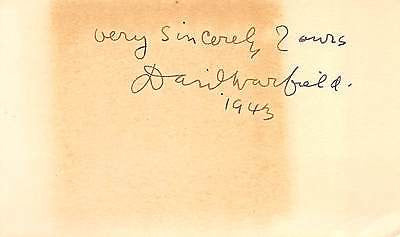 very Sincerely Yours
David Warfield.
1943